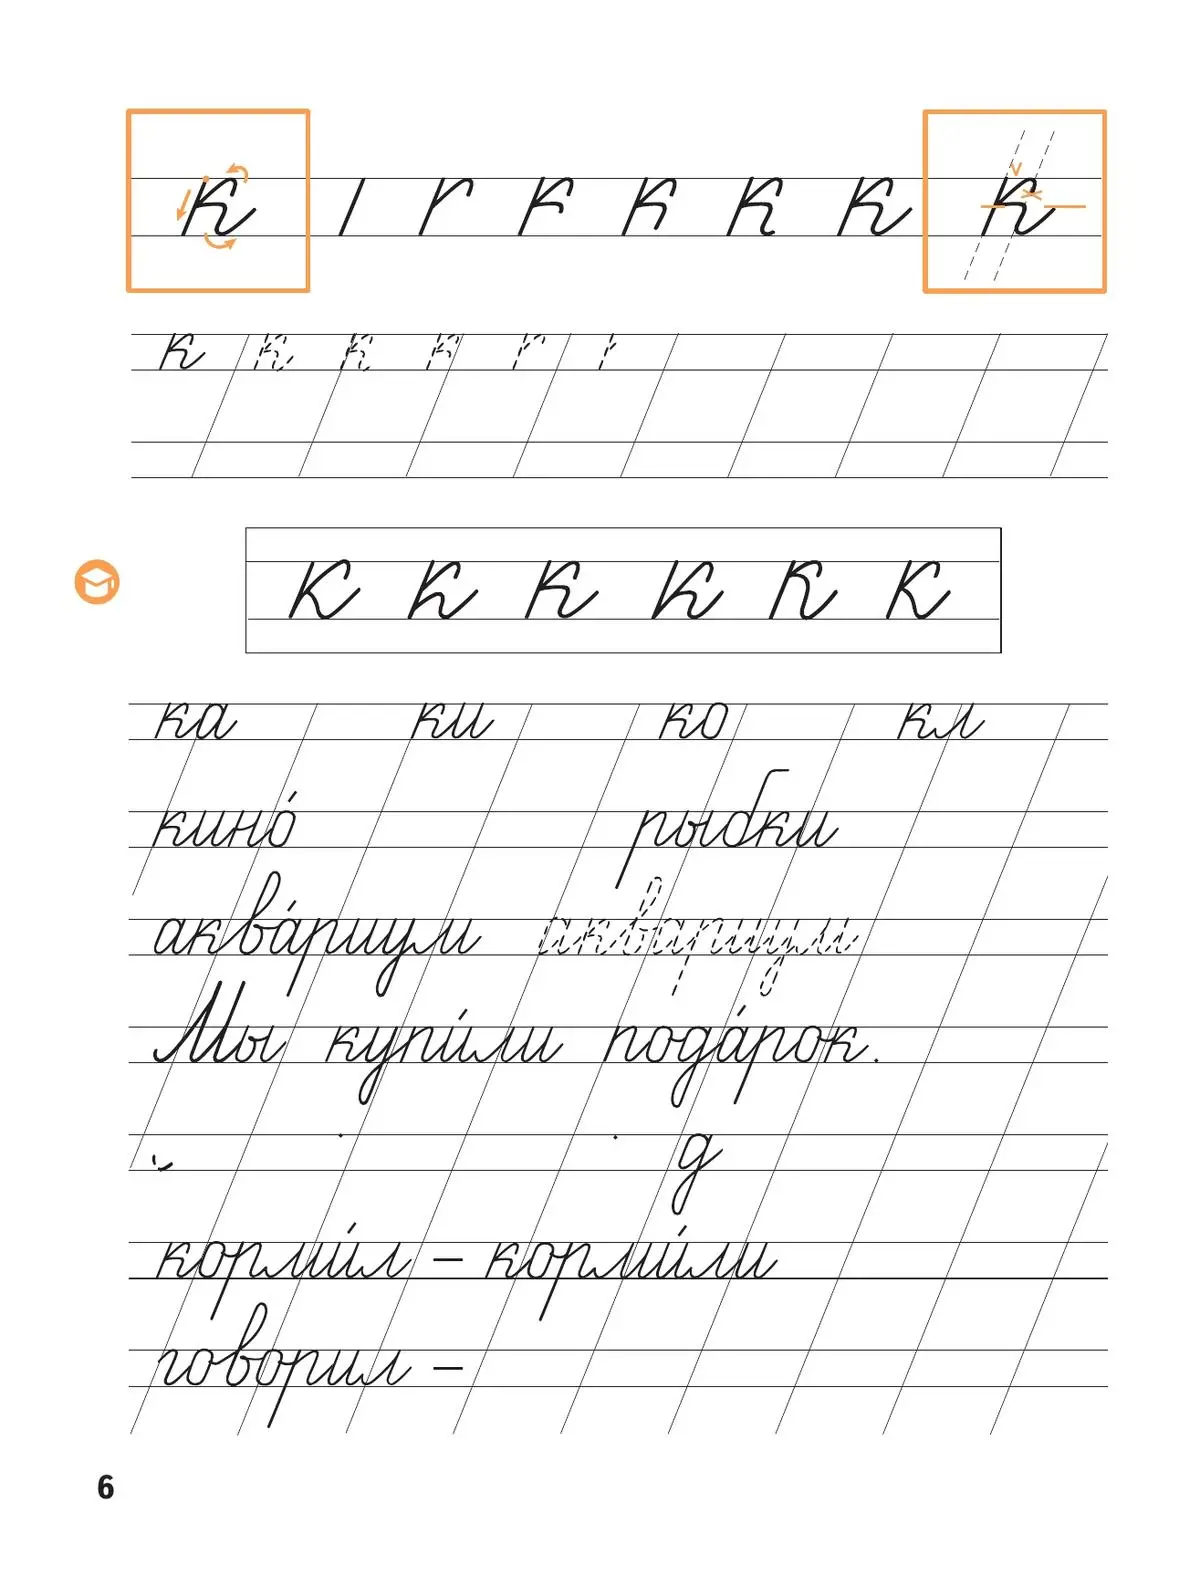 к к к к к
к к к к
к к к к к к
ка ки ко кл
кино́ рыбки
аква́риум аквариум
Мы купи́ли пода́рок.
д
корми́л – корми́ли
говорил –
6